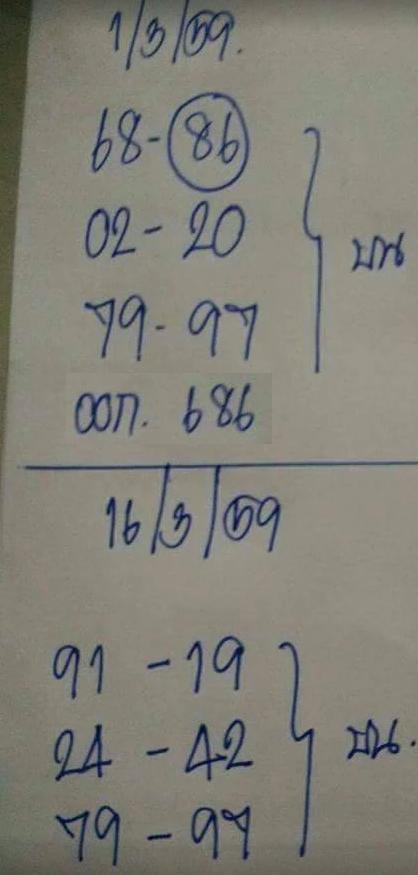 1/3/59.
68-86
02-20
79-97
บน
ออก. 686
16/3/59
91-19
24-42
79-97
บน.